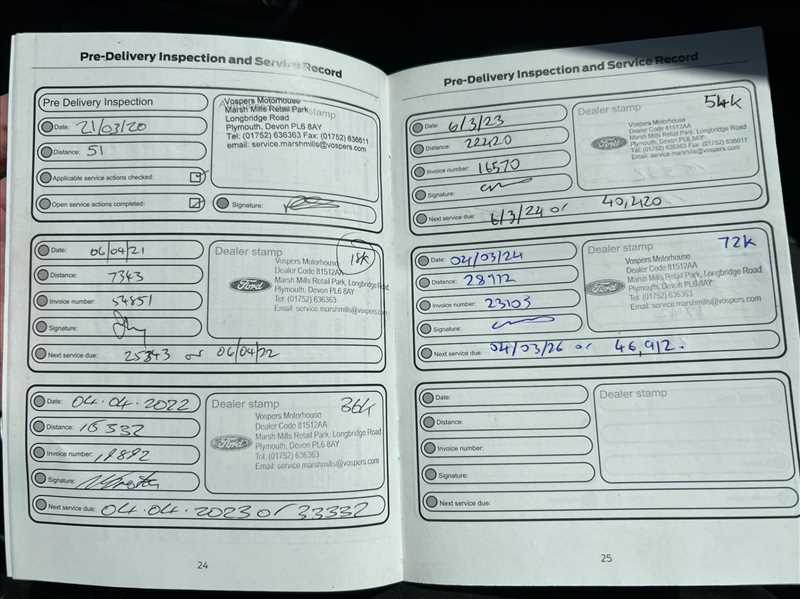 Pre-Delivery Inspection and Service Record
Pre Delivery Inspection
Date: 21/03/20
Distance: 51
Applicable service actions checked:
Open service actions completed:
Vospers Motorhouse
Marsh Mills Retail Park
Longbridge Road
Plymouth, Devon PL6 8AY
Tel: (01752) 636363 Fax: (01752) 636611
email: service.marshmills@vospers.com
Signature:
Date: 06/04/21
Distance: 7343
Invoice number: 54851
Signature:
Next service due: 25343 or 06/04/22
Dealer stamp
18k
Ford
Vospers Motorhouse
Dealer Code 81512AA
Marsh Mills Retail Park, Longbridge Road
Plymouth, Devon PL6 8AY
Tel: (01752) 636363
Email: service.marshmills@vospers.com
Date: 04.04.2022
Distance: 15332
Invoice number: 19892
Signature:
Next service due: 04.04.2023 or 33332
Dealer stamp
36k
Ford
Vospers Motorhouse
Dealer Code 81512AA
Marsh Mills Retail Park, Longbridge Road
Plymouth, Devon PL6 8AY
Tel: (01752) 636363
Email: service.marshmills@vospers.com
24
Pre-Delivery Inspection and Service Record
Date: 6/3/23
Distance: 22420
Invoice number: 16570
Signature:
Next service due: 6/3/24 or 40,420
Dealer stamp
54k
Ford
Vospers Motorhouse
Dealer Code 81512AA
Marsh Mills Retail Park, Longbridge Road
Plymouth, Devon PL6 8AY
Tel: (01752) 636363 Fax: (01752) 636611
Email: service.marshmills@vospers.com
Date: 04/03/24
Distance: 28912
Invoice number: 23103
Signature:
Next service due: 04/03/26 or 46,912.
Dealer stamp
72k
Ford
Vospers Motorhouse
Dealer Code 81512AA
Marsh Mills Retail Park, Longbridge Road
Plymouth, Devon PL6 8AY
Tel: (01752) 636363
Email: service.marshmills@vospers.com
Date:
Distance:
Invoice number:
Signature:
Next service due:
Dealer stamp
25